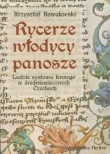 Krzysztof Kowalewski
Rycerze
włodycy
panosze
Ludzie systemu lennego
w średniowiecznych
Czechach